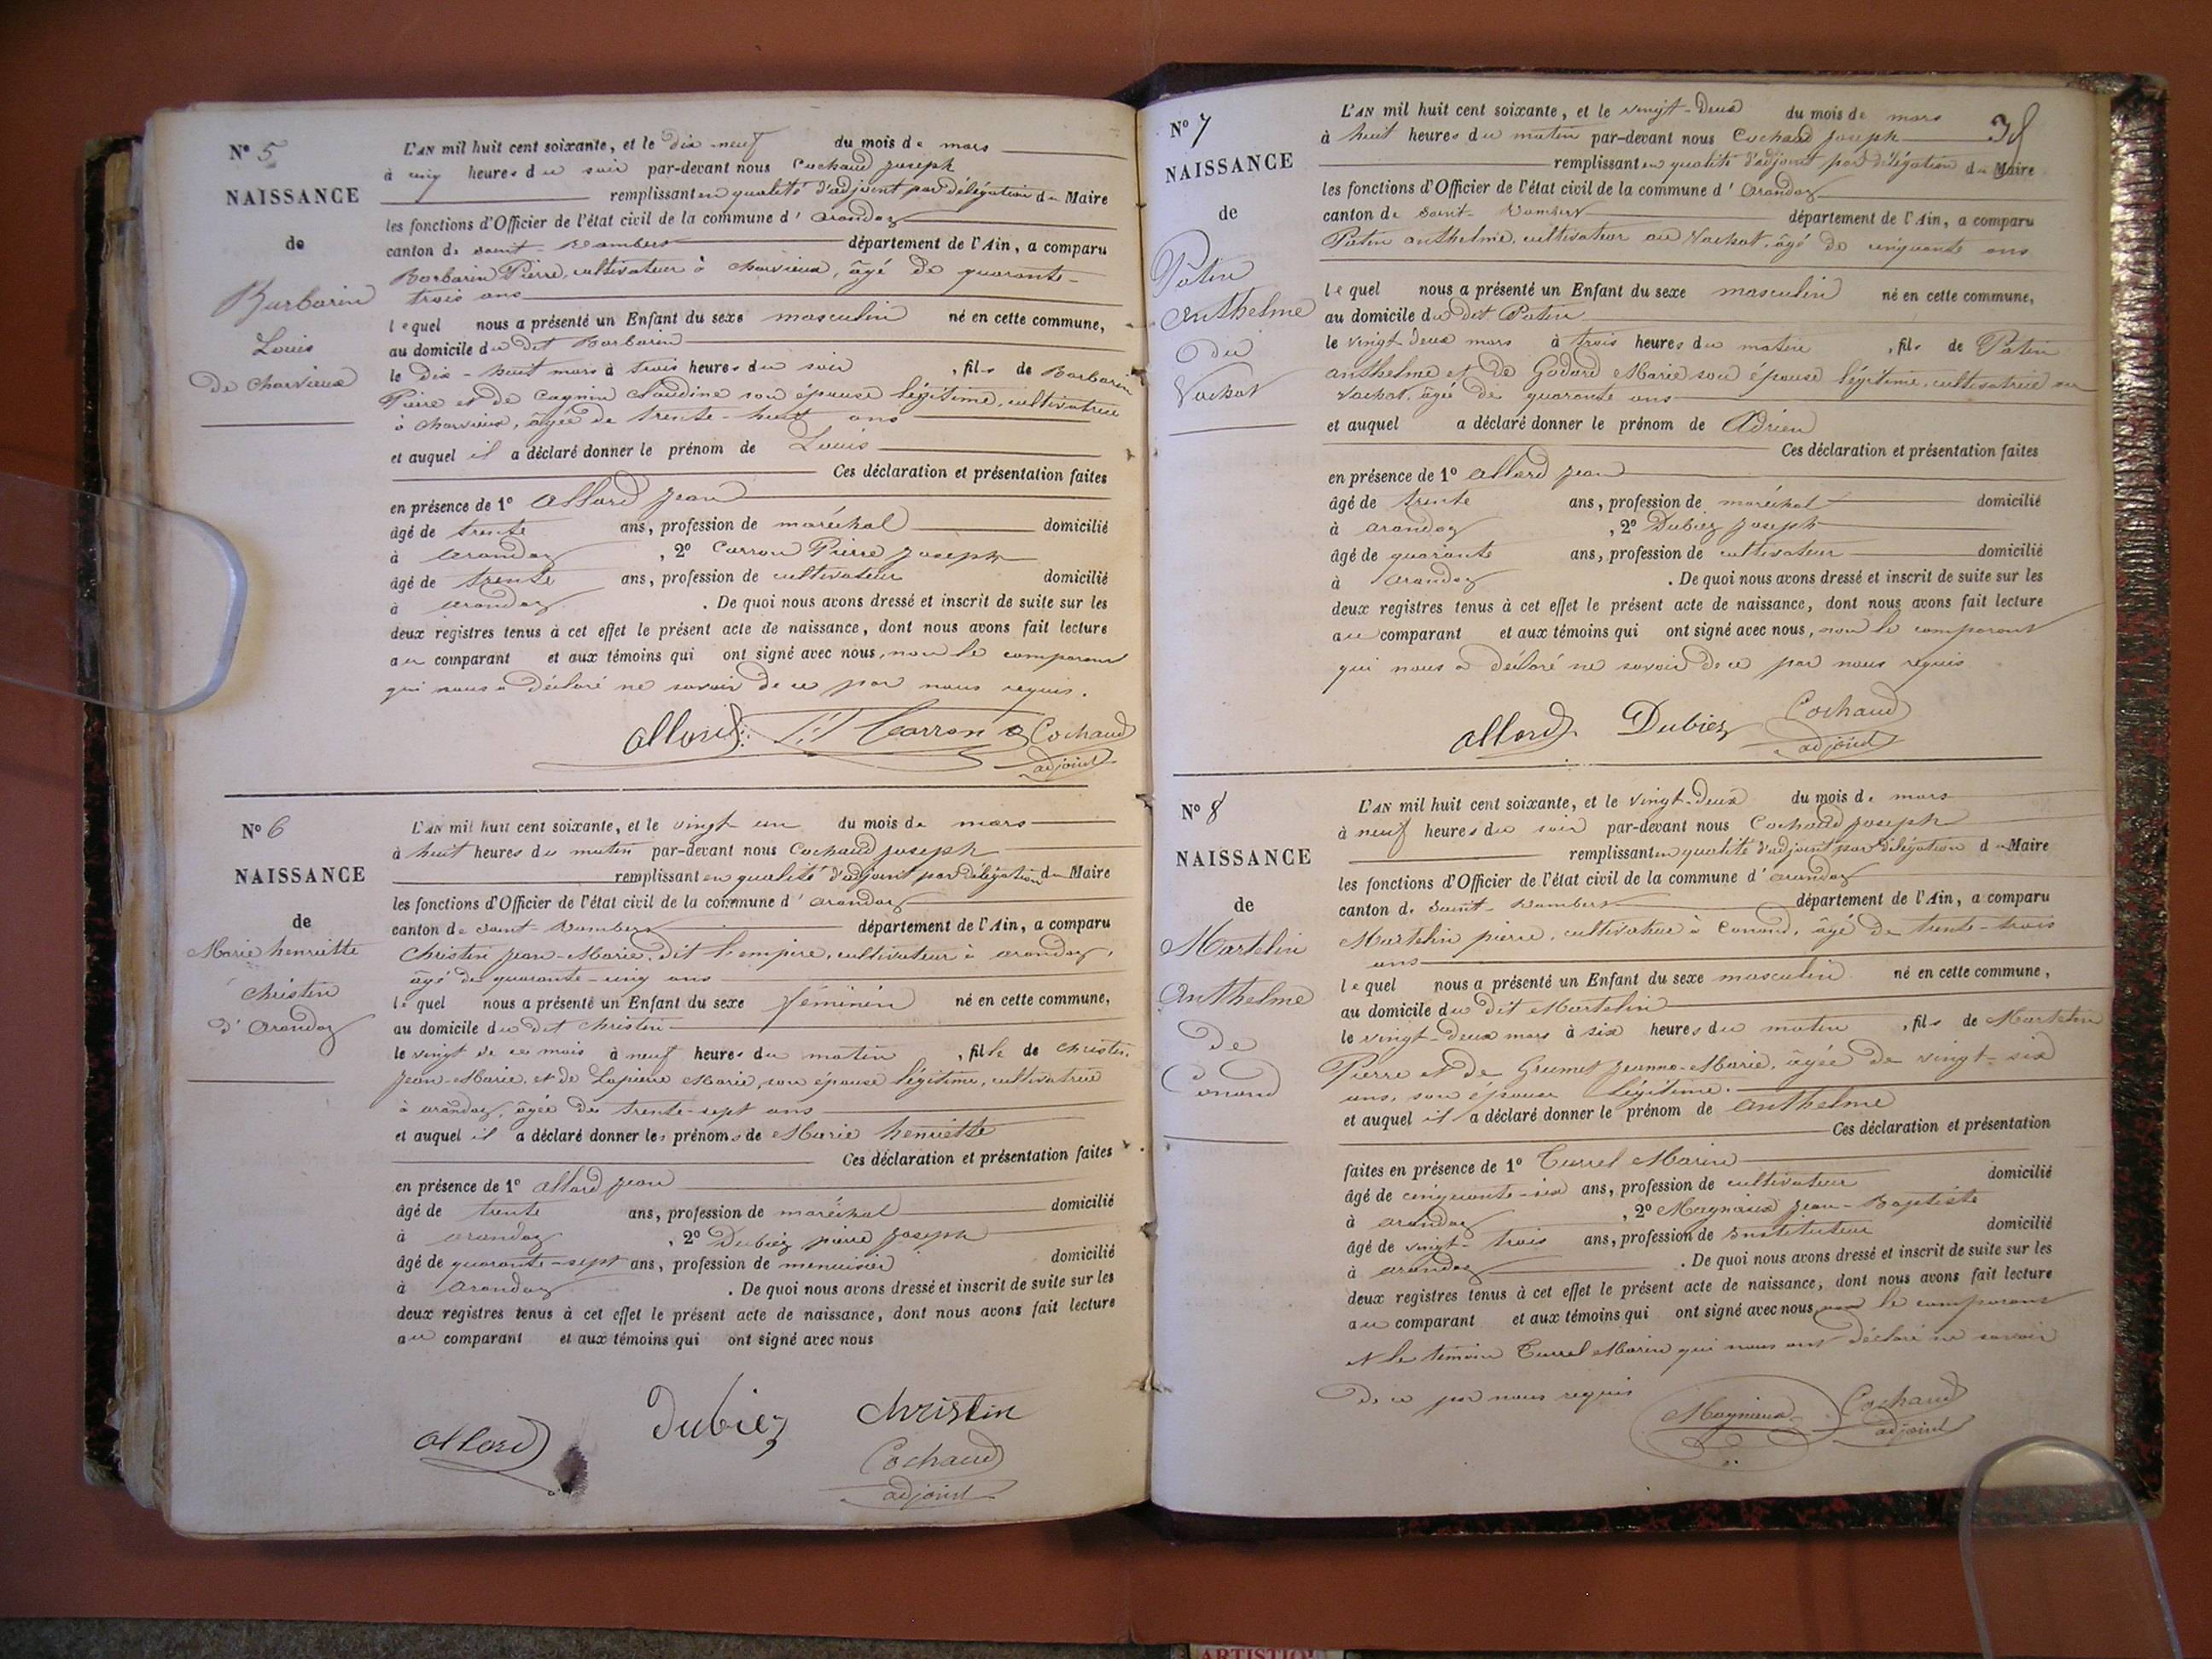 N° 5
NAISSANCE
de
Barbarin
Louis
de Charvieux
L'AN mil huit cent soixante, et le dix-neuf du mois de mars
à cinq heures du soir par-devant nous Cochaud Joseph
remplissant en qualité d'adjoint par délégation du Maire
les fonctions d'Officier de l'état civil de la commune d'arandaz
canton de saint-Rambert département de l'Ain, a comparu
Barbarin Pierre, cultivateur à charvieux, âgé de quarante-
trois ans
lequel nous a présenté un Enfant du sexe masculin né en cette commune,
au domicile du dit Barbarin
le dix-huit mars à trois heures du soir, fils de Barbarin
Pierre et de Cagnin Claudine son épouse légitime, cultivatrice
à charvieux, âgée de trente-huit ans
et auquel il a déclaré donner le prénom de Louis
Ces déclaration et présentation faites
en présence de 1° allard jean
âgé de trente ans, profession de maréchal domicilié
à arandaz, 2° Carron Pierre Joseph
âgé de trente ans, profession de cultivateur domicilié
à arandaz. De quoi nous avons dressé et inscrit de suite sur les
deux registres tenus à cet effet le présent acte de naissance, dont nous avons fait lecture
au comparant et aux témoins qui ont signé avec nous, non le comparant
qui nous a déclaré ne savoir de ce par nous requis.
allard Carron Cochaud
adjoint
N° 6
NAISSANCE
de
Marie henriette
christin
d'arandaz
L'AN mil huit cent soixante, et le vingt un du mois de mars
à huit heures du matin par-devant nous Cochaud joseph
remplissant en qualité d'adjoint par délégation du Maire
les fonctions d'Officier de l'état civil de la commune d'arandaz
canton de saint-Rambert département de l'Ain, a comparu
christin jean-Marie dit l'empire, cultivateur à arandaz,
âgé de quarante-cinq ans
lequel nous a présenté un Enfant du sexe féminin né en cette commune,
au domicile du dit christin
le vingt de ce mois à neuf heures du matin, fille de christin
jean-Marie, et de Lapierre Marie, son épouse légitime, cultivatrice
à arandaz, âgée de trente-sept ans
et auquel il a déclaré donner les prénoms de Marie henriette
Ces déclaration et présentation faites
en présence de 1° allard jean
âgé de trente ans, profession de maréchal domicilié
à arandaz, 2° Dubiez pierre joseph
âgé de quarante-sept ans, profession de menuisier domicilié
à arandaz. De quoi nous avons dressé et inscrit de suite sur les
deux registres tenus à cet effet le présent acte de naissance, dont nous avons fait lecture
au comparant et aux témoins qui ont signé avec nous
allard Dubiez christin
Cochaud
adjoint
38
N° 7
NAISSANCE
de
Patin
Anthelme
du
Vachat
L'AN mil huit cent soixante, et le vingt-deux du mois de mars
à huit heures du matin par-devant nous Cochaud joseph
remplissant en qualité d'adjoint par délégation du Maire
les fonctions d'Officier de l'état civil de la commune d'arandaz
canton de saint-Rambert département de l'Ain, a comparu
Patin anthelme, cultivateur au Vachat, âgé de cinquante ans
lequel nous a présenté un Enfant du sexe masculin né en cette commune,
au domicile du dit Patin
le vingt-deux mars à trois heures du matin, fils de Patin
anthelme et de Godard Marie son épouse légitime, cultivatrice au
Vachat, âgée de quarante ans
et auquel a déclaré donner le prénom de Adrien
Ces déclaration et présentation faites
en présence de 1° allard jean
âgé de trente ans, profession de maréchal domicilié
à arandaz, 2° Dubiez joseph
âgé de quarante ans, profession de cultivateur domicilié
à arandaz. De quoi nous avons dressé et inscrit de suite sur les
deux registres tenus à cet effet le présent acte de naissance, dont nous avons fait lecture
au comparant et aux témoins qui ont signé avec nous, non le comparant
qui nous a déclaré ne savoir de ce par nous requis
allard Dubiez Cochaud
adjoint
N° 8
NAISSANCE
de
Martelin
Anthelme
de
Conand
L'AN mil huit cent soixante, et le vingt-deux du mois de mars
à neuf heures du soir par-devant nous Cochaud joseph
remplissant en qualité d'adjoint par délégation du Maire
les fonctions d'Officier de l'état civil de la commune d'arandaz
canton de saint-Rambert département de l'Ain, a comparu
Martelin pierre, cultivateur à Conand, âgé de trente-trois
ans
lequel nous a présenté un Enfant du sexe masculin né en cette commune,
au domicile du dit Martelin
le vingt-deux mars à six heures du matin, fils de Martelin
Pierre et de Grumet Jeanne-Marie, âgée de vingt-six
ans, son épouse légitime.
et auquel il a déclaré donner le prénom de anthelme
Ces déclaration et présentation
faites en présence de 1° Turrel Marin
âgé de cinquante-six ans, profession de cultivateur domicilié
à arandaz, 2° Magnieux Jean-Baptiste
âgé de vingt-trois ans, profession de Instituteur domicilié
à arandaz. De quoi nous avons dressé et inscrit de suite sur les
deux registres tenus à cet effet le présent acte de naissance, dont nous avons fait lecture
au comparant et aux témoins qui ont signé avec nous, non le comparant
et le témoin Turrel Marin qui nous ont déclaré ne savoir
de ce par nous requis
Magnieux Cochaud
adjoint
ARTISTIQ